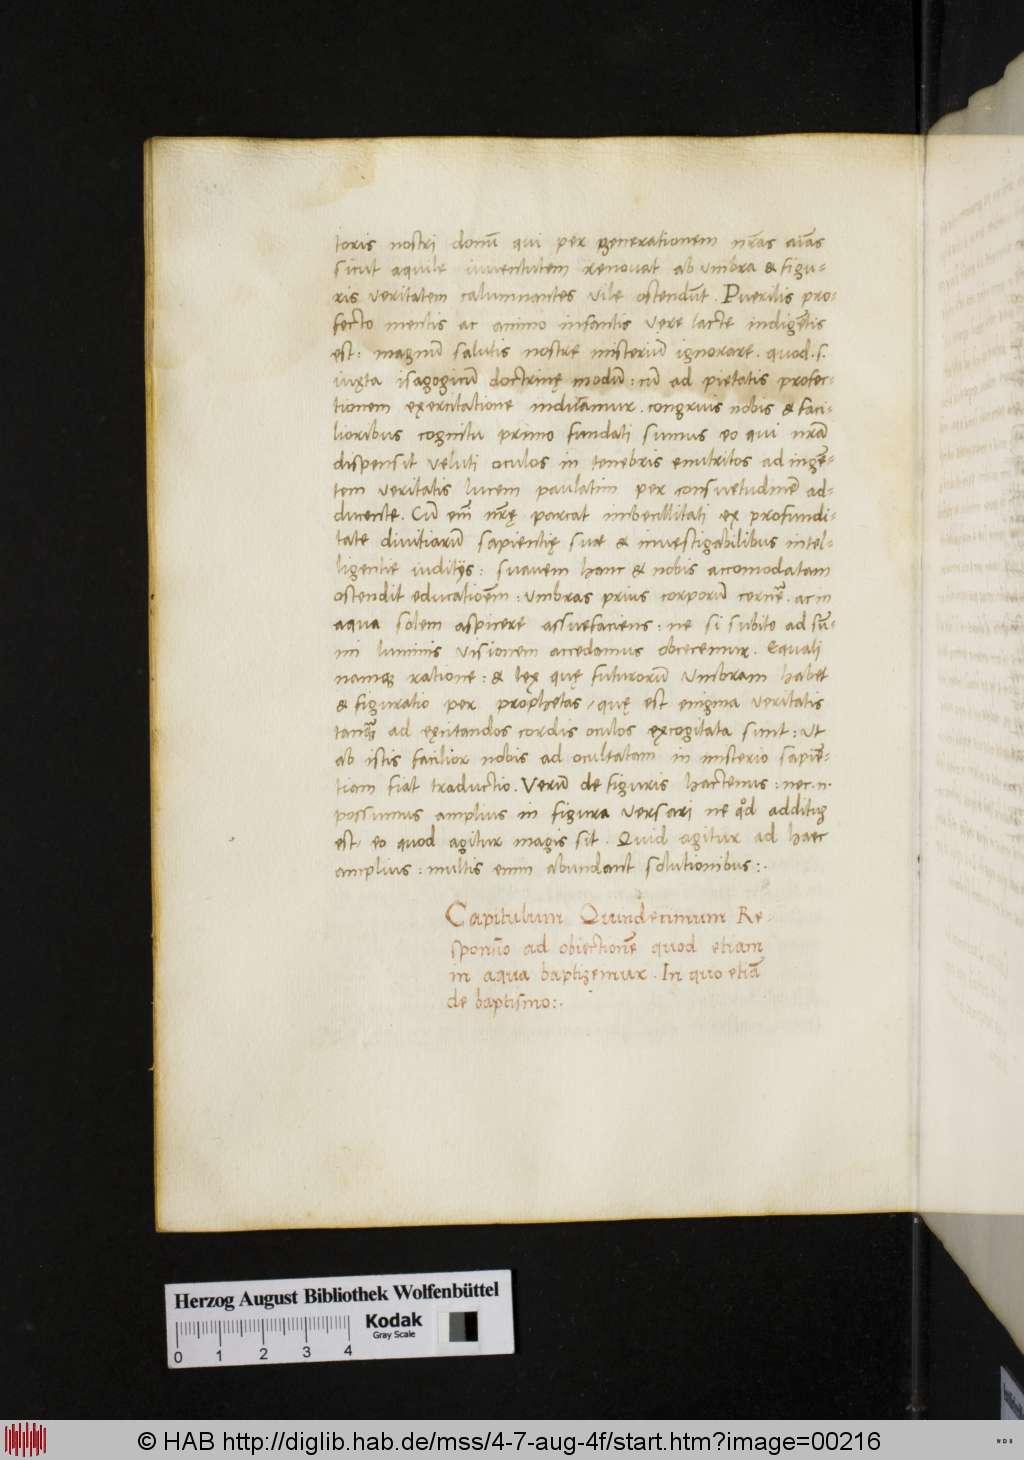 toris nostri donū qui per generationem nr̄as aīas
sicut aquile iuventutem renovat ab umbra & figu-
ris veritatem calumniantes vile ostendūt. Puerilis pro-
fecto mentis ac animo infantis vere lacte indigētis
est: magnū salutis nostre misteriū ignorare. quod .s.
iuxta isagogicū doctrinę modū: cū ad pietatis profec-
tionem exercitatione inducamur. congruis nobis & faci-
lioribus cognitu primo fundati sumus eo qui nr̄a
dispensit veluti oculos in tenebris enutritos ad ingē-
tem veritatis lucem paulatim per consuetudinē ad-
ducente. Cū em̄ nr̄ę parcat imbecillitati ex profundi-
tate divitiarū sapientię suæ & investigabilibus intel-
ligentie iuditijs: suavem hanc & nobis accomodatam
ostendit educatiōem: umbras prius corporū cernē. ac in
aqua solem aspicere assuefaciens: ne si subito ad sū-
mi luminis visionem accedamus obcecemur. Equali
namqꝫ ratione: & lex quę futurorū umbram habet
& figuratio per prophetas, quę est enigma veritatis
tanqꝫ̄ ad excitandos cordis oculos excogitata sunt: ut
ab istis facilior nobis ad ocultatam in misterio sapiē-
tiam fiat traductio. Verū de figuris hactenus: nec .n.
possumus amplius in figura versari ne qͦd additꝫ
est. eo quod agitur magis sit. Quid agitur ad haec
amplius: multis enim abundant solutionibus:.
Capitulum Quindecimum Re-
sponsio ad obiectionē quod etiam
in aqua baptizemur. In quo etiā
de baptismo:.
Herzog August Bibliothek Wolfenbüttel
Kodak
Gray Scale
0 1 2 3 4
© HAB http://diglib.hab.de/mss/4-7-aug-4f/start.htm?image=00216